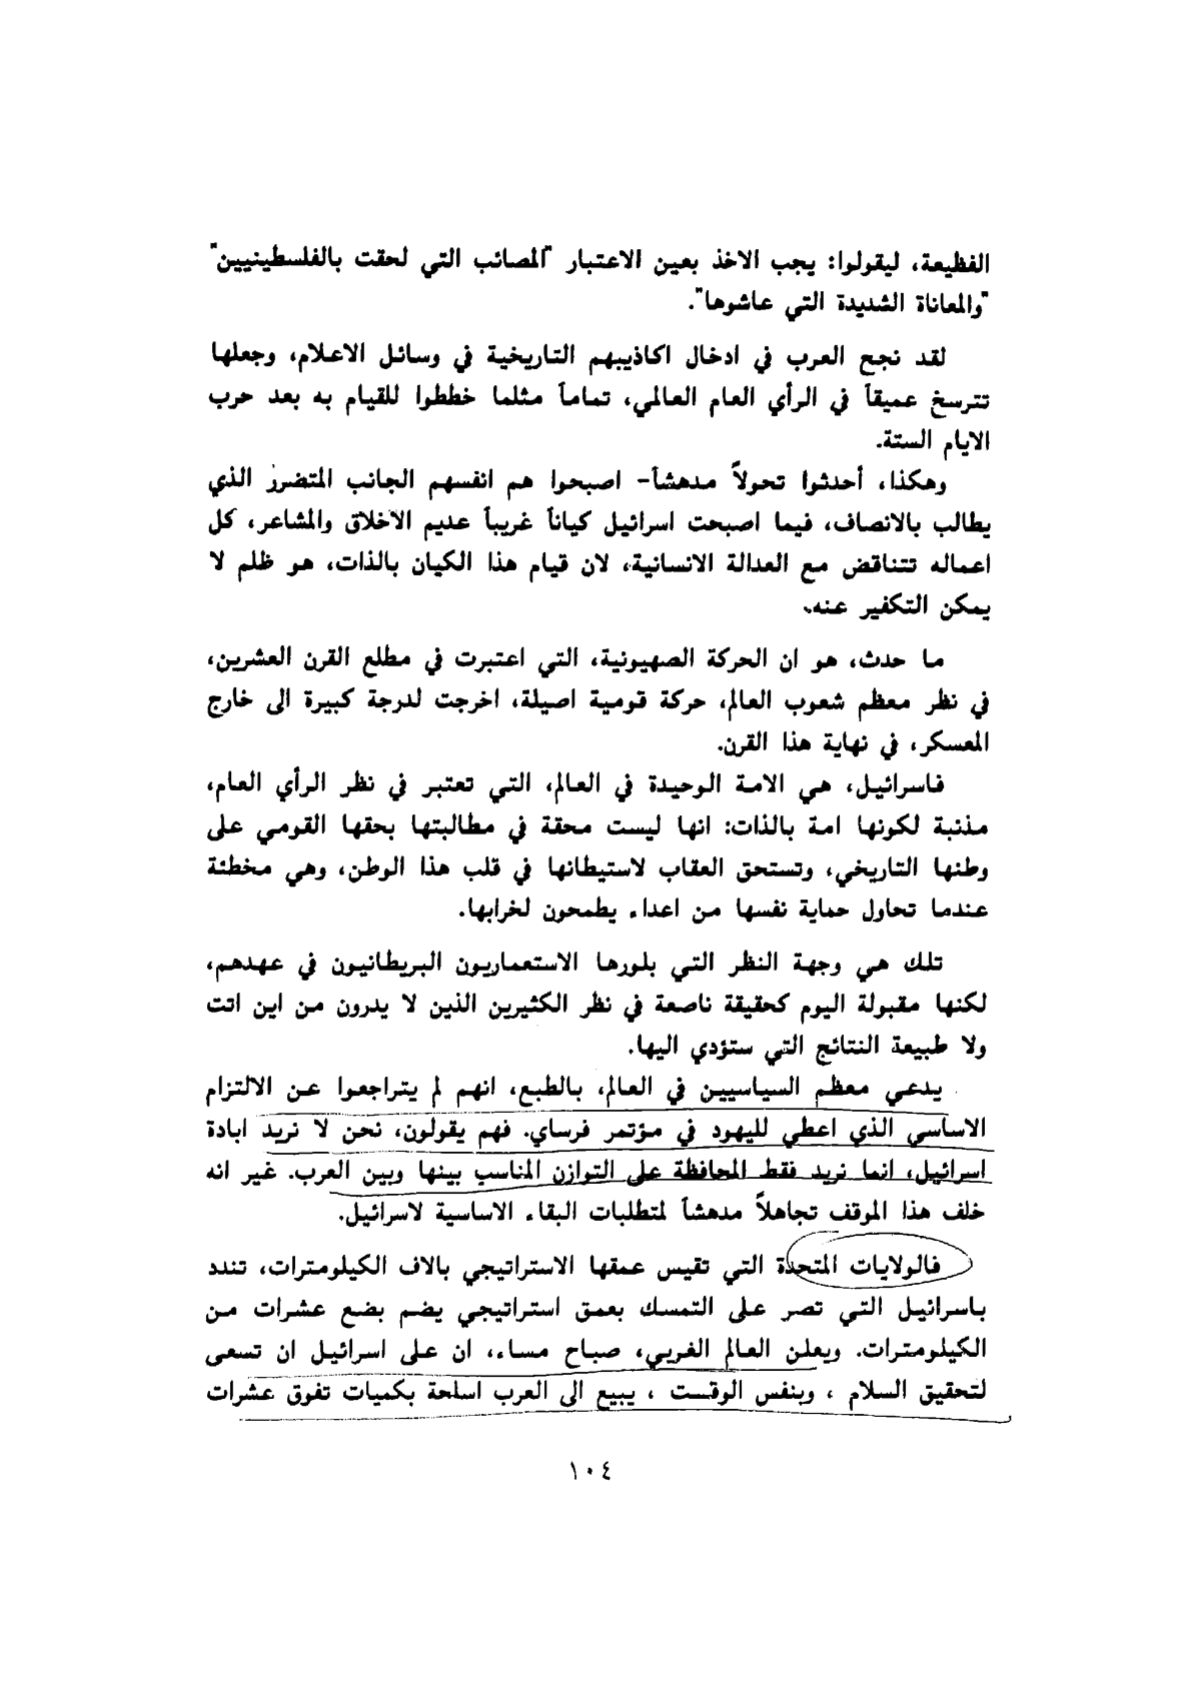 الفظيعة، ليقولوا: يجب الاخذ بعين الاعتبار "المصائب التي لحقت بالفلسطينيين"
"والمعاناة الشديدة التي عاشوها".
لقد نجح العرب في ادخال اكاذيبهم التاريخية في وسائل الاعلام، وجعلها
تترسخ عميقاً في الرأي العام العالمي، تماماً مثلما خططوا للقيام به بعد حرب
الايام الستة.
وهكذا، أحدثوا تحولاً مدهشاً- اصبحوا هم انفسهم الجانب المتضرر الذي
يطالب بالانصاف، فيما اصبحت اسرائيل كياناً غريباً عديم الاخلاق والمشاعر، كل
اعماله تتناقض مع العدالة الانسانية، لان قيام هذا الكيان بالذات، هو ظلم لا
يمكن التكفير عنه.
ما حدث، هو ان الحركة الصهيونية، التي اعتبرت في مطلع القرن العشرين،
في نظر معظم شعوب العالم، حركة قومية اصيلة، اخرجت لدرجة كبيرة الى خارج
المعسكر، في نهاية هذا القرن.
فاسرائيل، هي الامة الوحيدة في العالم، التي تعتبر في نظر الرأي العام،
مذنبة لكونها امة بالذات: انها ليست محقة في مطالبتها بحقها القومي على
وطنها التاريخي، وتستحق العقاب لاستيطانها في قلب هذا الوطن، وهي مخطئة
عندما تحاول حماية نفسها من اعداء يطمحون لخرابها.
تلك هي وجهة النظر التي بلورها الاستعماريون البريطانيون في عهدهم،
لكنها مقبولة اليوم كحقيقة ناصعة في نظر الكثيرين الذين لا يدرون من اين اتت
ولا طبيعة النتائج التي ستؤدي اليها.
يدعي معظم السياسيين في العالم، بالطبع، انهم لم يتراجعوا عن الالتزام
الاساسي الذي اعطي لليهود في مؤتمر فرساي. فهم يقولون، نحن لا نريد ابادة
اسرائيل، انما نريد فقط المحافظة على التوازن المناسب بينها وبين العرب. غير انه
خلف هذا الموقف تجاهلاً مدهشاً لمتطلبات البقاء الاساسية لاسرائيل.
فالولايات المتحدة التي تقيس عمقها الاستراتيجي بالاف الكيلومترات، تندد
باسرائيل التي تصر على التمسك بعمق استراتيجي يضم بضع عشرات من
الكيلومترات. ويعلن العالم الغربي، صباح مساء، ان على اسرائيل ان تسعى
لتحقيق السلام ، وبنفس الوقت ، يبيع الى العرب اسلحة بكميات تفوق عشرات
١٠٤